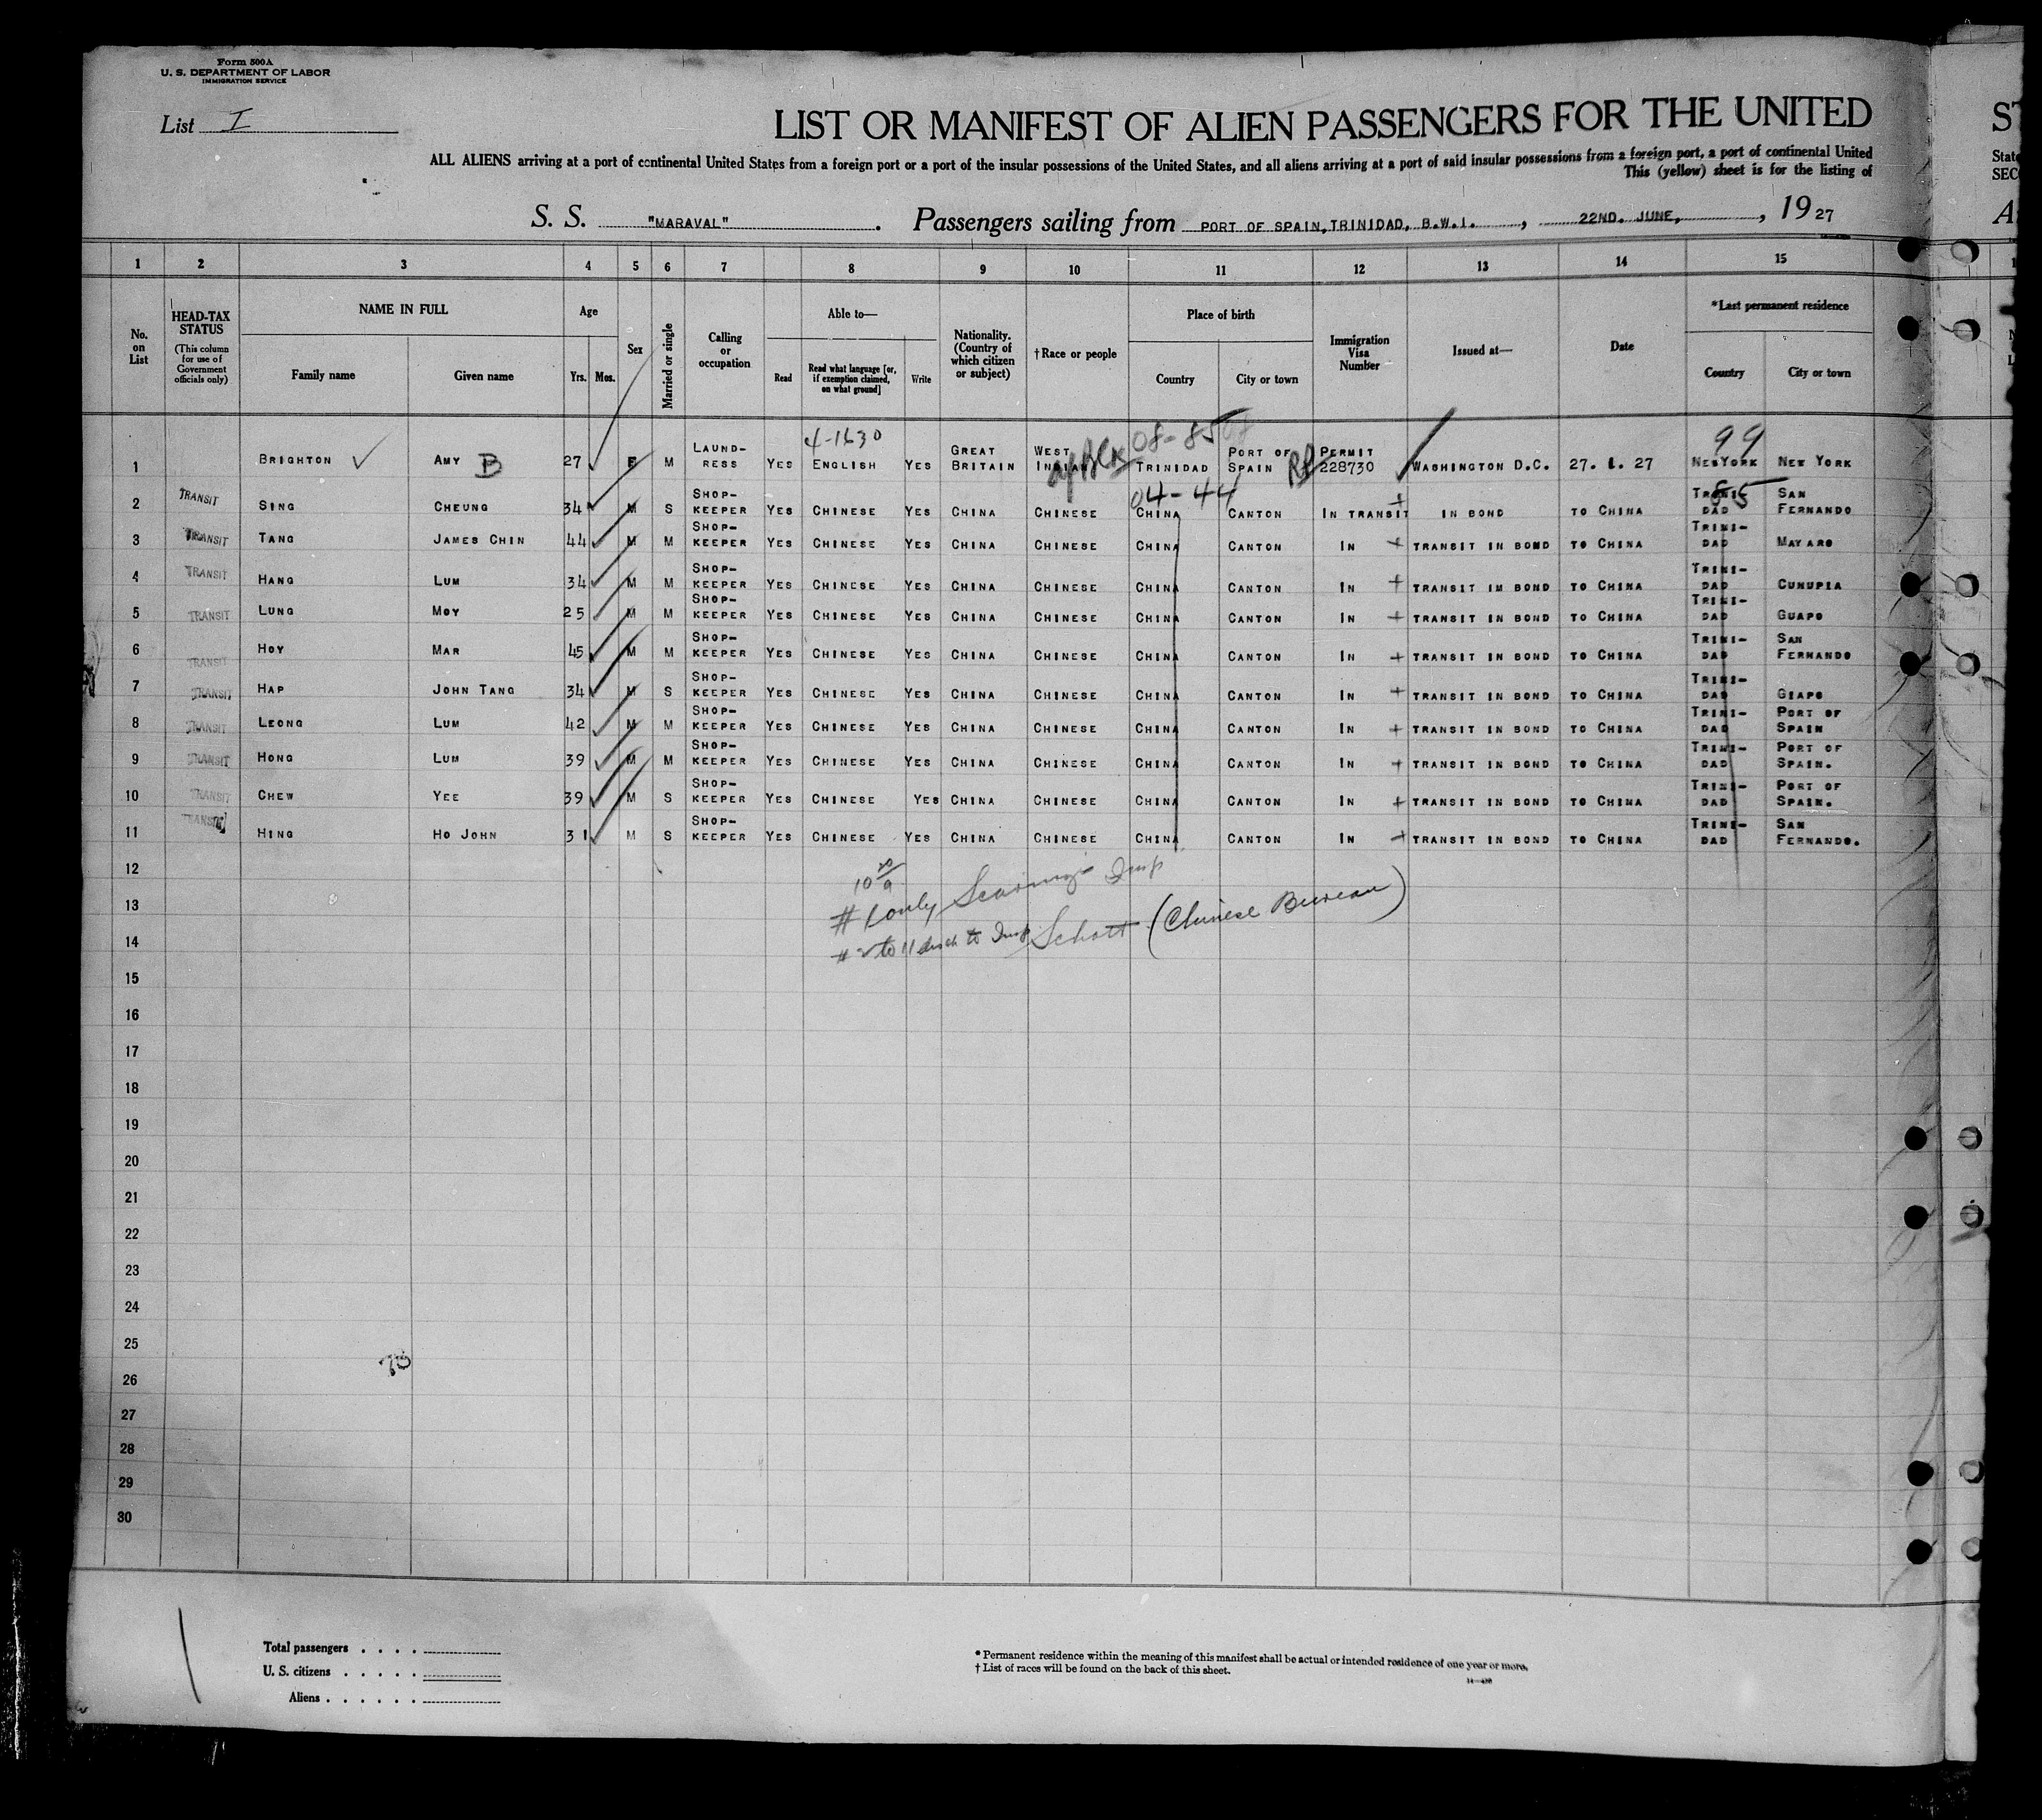 Form 500A
U. S. DEPARTMENT OF LABOR
IMMIGRATION SERVICE
List I
LIST OR MANIFEST OF ALIEN PASSENGERS FOR THE UNITED
ALL ALIENS arriving at a port of continental United States from a foreign port or a port of the insular possessions of the United States, and all aliens arriving at a port of said insular possessions from a foreign port, a port of continental United
This (yellow) sheet is for the listing of
S. S. "MARAVAL". Passengers sailing from PORT OF SPAIN, TRINIDAD, B.W.I., 22ND. JUNE, 1927
1 2 3 4 5 6 7 8 9 10 11 12 13 14 15
No. on List
HEAD-TAX STATUS
(This column for use of Government officials only)
NAME IN FULL
Family name Given name
Age
Yrs. Mos.
Sex
Married or single
Calling or occupation
Able to—
Read
Read what language [or, if exemption claimed, on what ground]
Write
Nationality. (Country of which citizen or subject)
†Race or people
Place of birth
Country City or town
Immigration Visa Number
Issued at—
Date
*Last permanent residence
Country City or town
4-1630 08-85 99
1 BRIGHTON AMY B 27 F M LAUNDRESS YES ENGLISH YES GREAT BRITAIN WEST INDIAN TRINIDAD PORT OF SPAIN PERMIT 228730 WASHINGTON D.C. 27. 1. 27 NEW YORK NEW YORK
04-44 85
2 TRANSIT SING CHEUNG 34 M S SHOP-KEEPER YES CHINESE YES CHINA CHINESE CHINA CANTON IN TRANSIT IN BOND TO CHINA TRINI-DAD SAN FERNANDO
3 TRANSIT TANG JAMES CHIN 44 M M SHOP-KEEPER YES CHINESE YES CHINA CHINESE CHINA CANTON IN TRANSIT IN BOND TO CHINA TRINI-DAD MAYARO
4 TRANSIT HANG LUM 34 M M SHOP-KEEPER YES CHINESE YES CHINA CHINESE CHINA CANTON IN TRANSIT IN BOND TO CHINA TRINI-DAD CUNUPIA
5 TRANSIT LUNG MOY 25 M M SHOP-KEEPER YES CHINESE YES CHINA CHINESE CHINA CANTON IN TRANSIT IN BOND TO CHINA TRINI-DAD GUAPO
6 TRANSIT HOY MAR 45 M M SHOP-KEEPER YES CHINESE YES CHINA CHINESE CHINA CANTON IN TRANSIT IN BOND TO CHINA TRINI-DAD SAN FERNANDO
7 TRANSIT HAP JOHN TANG 34 M S SHOP-KEEPER YES CHINESE YES CHINA CHINESE CHINA CANTON IN TRANSIT IN BOND TO CHINA TRINI-DAD GIAPO
8 TRANSIT LEONG LUM 42 M M SHOP-KEEPER YES CHINESE YES CHINA CHINESE CHINA CANTON IN TRANSIT IN BOND TO CHINA TRINI-DAD PORT OF SPAIN
9 TRANSIT HONG LUM 39 M M SHOP-KEEPER YES CHINESE YES CHINA CHINESE CHINA CANTON IN TRANSIT IN BOND TO CHINA TRINI-DAD PORT OF SPAIN.
10 TRANSIT CHEW YEE 39 M S SHOP-KEEPER YES CHINESE YES CHINA CHINESE CHINA CANTON IN TRANSIT IN BOND TO CHINA TRINI-DAD PORT OF SPAIN.
11 TRANSIT HING HO JOHN 31 M S SHOP-KEEPER YES CHINESE YES CHINA CHINESE CHINA CANTON IN TRANSIT IN BOND TO CHINA TRINI-DAD SAN FERNANDO.
12
13 #1 only Insp
14 #2 to 11 disch to Insp Schott (Chinese Bureau)
15
16
17
18
19
20
21
22
23
24
25
26
27
28
29
30
Total passengers
U. S. citizens
Aliens
* Permanent residence within the meaning of this manifest shall be actual or intended residence of one year or more.
† List of races will be found on the back of this sheet.